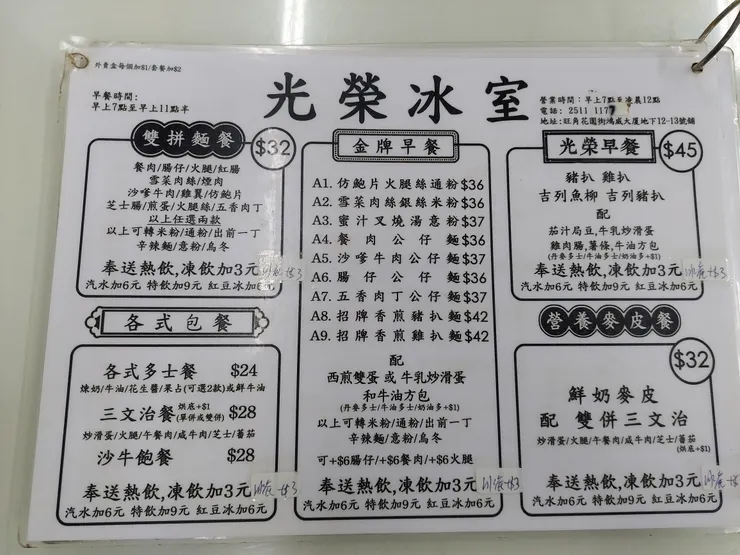 外賣盒每個加$1/套餐加$2
早餐時間:
早上7點至早上11點半
光榮冰室
營業時間:早上7點至凌晨12點
電話: 2511 1177
地址:旺角花園街鴻威大廈地下12-13號舖
雙拼麵餐
$32
餐肉/腸仔/火腿/紅腸
雪菜肉絲/煙肉
沙嗲牛肉/雞翼/仿鮑片
芝士腸/煎蛋/火腿絲/五香肉丁
以上任選兩款
以上可轉米粉/通粉/出前一丁
辛辣麵/意粉/烏冬
奉送熱飲,凍飲加3元
汽水加6元 特飲加9元 紅豆冰加6元
各式包餐
各式多士餐 $24
煉奶/牛油/花生醬/果占(可選2款)或鮮牛油
三文治餐 烘底+$1 (單併或雙併) $28
炒滑蛋/火腿/午餐肉/咸牛肉/芝士/蕃茄
沙牛飽餐 $28
奉送熱飲,凍飲加3元
汽水加6元 特飲加9元 紅豆冰加6元
金牌早餐
A1. 仿鮑片火腿絲通粉 $36
A2. 雪菜肉絲銀絲米粉 $36
A3. 蜜汁叉燒湯意粉 $37
A4. 餐肉公仔麵 $36
A5. 沙嗲牛肉公仔麵 $37
A6. 腸仔公仔麵 $36
A7. 五香肉丁公仔麵 $37
A8. 招牌香煎豬扒麵 $42
A9. 招牌香煎雞扒麵 $42
配
西煎雙蛋 或 牛乳炒滑蛋
和牛油方包
(丹麥多士/牛油多士/奶油多+$1)
以上可轉米粉/通粉/出前一丁
辛辣麵/意粉/烏冬
可+$6腸仔/+$6餐肉/+$6火腿
奉送熱飲,凍飲加3元
汽水加6元 特飲加9元 紅豆冰加6元
光榮早餐
$45
豬扒 雞扒
吉列魚柳 吉列豬扒
配
茄汁焗豆,牛乳炒滑蛋
雞肉腸,薯條,牛油方包
(丹麥多士/牛油多士/奶油多+$1)
奉送熱飲,凍飲加3元
汽水加6元 特飲加9元 紅豆冰加6元
營養麥皮餐
$32
鮮奶麥皮
配 雙併三文治
炒滑蛋/火腿/午餐肉/咸牛肉/芝士/蕃茄
(烘底+$1)
奉送熱飲,凍飲加3元
汽水加6元 特飲加9元 紅豆冰加6元